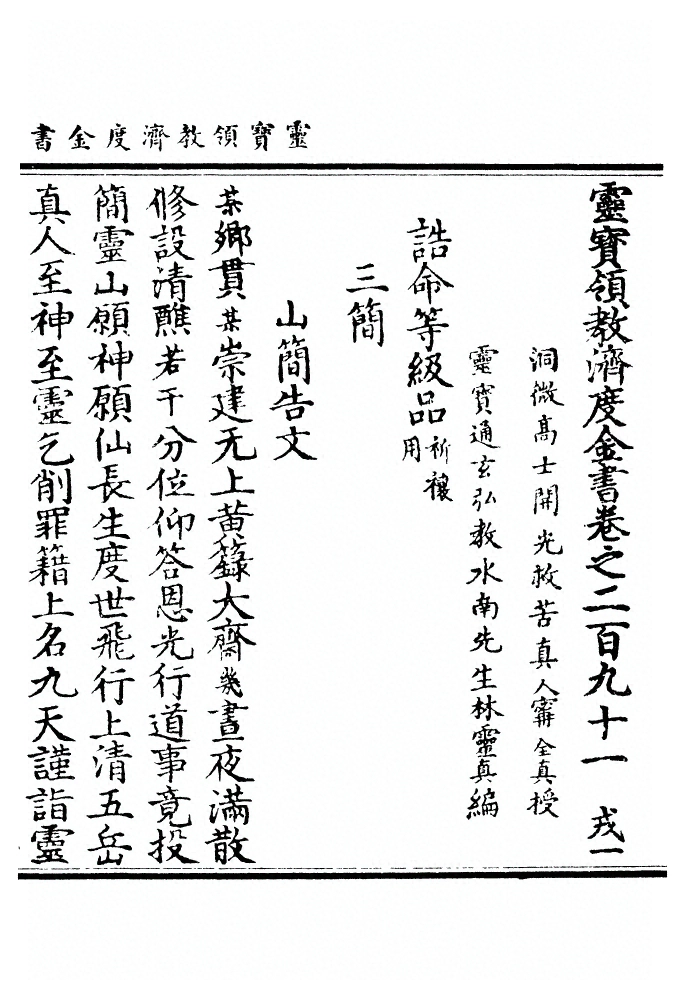 靈寶領教濟度金書
靈寶領教濟度金書卷之二百九十一 戎一
洞微高士開光救苦真人寗全真授
靈寶通玄弘教水南先生林靈真編
誥命等級品 祈禳用
三簡
山簡告文
某鄉貫某崇建无上黃籙大齋幾晝夜滿散
修設清醮若干分位仰答恩光行道事竟投
簡靈山願神願仙長生度世飛行上清五岳
真人至神至靈乞削罪籍上名九天謹詣靈